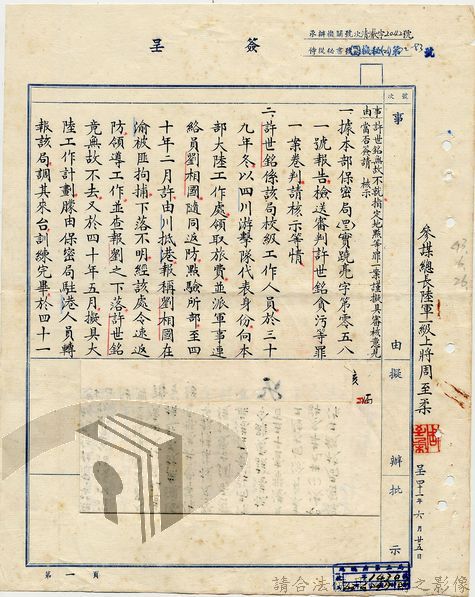 簽呈
承辦機關號次清嶽字2042號
侍從祕書號
號次
事由擬辦批示
參謀總長陸軍一級上將周至柔
呈四十二年六月廿五日
事由：許世銘無故不就指定地點等罪一案謹擬具審核意見
當否簽請 核示
一、據本部保密局(四二)實蹺亮字第零五八
一號報告檢送審判許世銘貪污等罪
一案卷判請核示等情
二、許世銘係該局校級工作人員於三十
九年冬以四川游擊隊代表身份向本
部大陸工作處領取旅費並派軍事連
絡員劉相國隨同返防點驗所部至四
十年二月許由川抵港報稱劉相國在
渝被匪拘捕下落不明經該處令速返
防領導工作並查報劉之下落許世銘
竟無故不去又於四十年五月擬具大
陸工作計劃牒由保密局駐港人員轉
報該局調其來台訓練完畢於四十一
第一頁
請合法
之影像